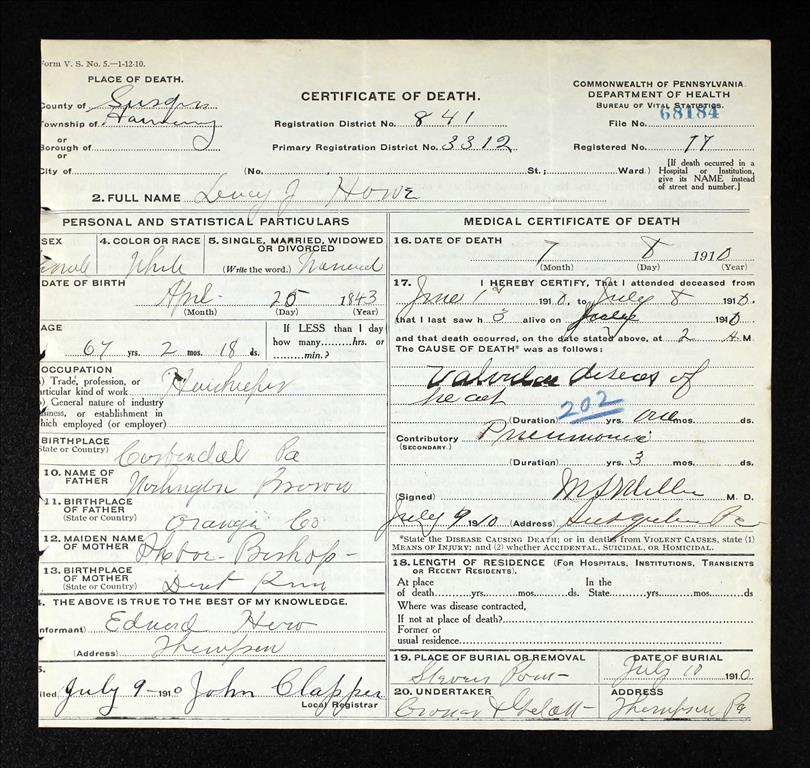 Form V. S. No. 5.—1-12-10.
PLACE OF DEATH.
County of Susq'a
Township of Harmony
or
Borough of
or
City of
CERTIFICATE OF DEATH.
Registration District No. 841
Primary Registration District No. 3312
COMMONWEALTH OF PENNSYLVANIA
DEPARTMENT OF HEALTH
BUREAU OF VITAL STATISTICS.
File No. 68184
Registered No. 77
(No. St.; Ward)
[If death occurred in a Hospital or Institution, give its NAME instead of street and number.]
2. FULL NAME Lucy J Howe
PERSONAL AND STATISTICAL PARTICULARS
SEX
4. COLOR OR RACE White
5. SINGLE, MARRIED, WIDOWED OR DIVORCED
(Write the word.) Married
DATE OF BIRTH
April 25 1843
(Month) (Day) (Year)
AGE
67 yrs. 2 mos. 18 ds.
If LESS than 1 day how many hrs. or min.?
OCCUPATION
(a) Trade, profession, or particular kind of work Housekeeper
(b) General nature of industry business, or establishment in which employed (or employer)
BIRTHPLACE
(State or Country) Carbondal Pa
10. NAME OF FATHER Worthington Brown
11. BIRTHPLACE OF FATHER
(State or Country) Orange Co
12. MAIDEN NAME OF MOTHER Phebe Bishop
13. BIRTHPLACE OF MOTHER
(State or Country)
THE ABOVE IS TRUE TO THE BEST OF MY KNOWLEDGE.
(Informant) Edward How
(Address) Thompson
Filed July 9 1910 John Clapper
Local Registrar
MEDICAL CERTIFICATE OF DEATH
16. DATE OF DEATH
7 8 1910
(Month) (Day) (Year)
17. I HEREBY CERTIFY, That I attended deceased from
June 1st 1910, to July 8 1910,
that I last saw h alive on July 1910
and that death occurred, on the date stated above, at 2 A M.
The CAUSE OF DEATH* was as follows:
Valvular diseas of
heart
202
(Duration) yrs. one mos. ds.
Contributory Pneumonia
(SECONDARY.)
(Duration) yrs. 3 mos. ds.
(Signed) Miller M. D.
July 9 1910 (Address) Pa
*State the DISEASE CAUSING DEATH; or in deaths from VIOLENT CAUSES, state (1) MEANS OF INJURY; and (2) whether ACCIDENTAL, SUICIDAL, OR HOMICIDAL.
18. LENGTH OF RESIDENCE (FOR HOSPITALS, INSTITUTIONS, TRANSIENTS OR RECENT RESIDENTS).
At place of death yrs. mos. ds. In the State yrs. mos. ds
Where was disease contracted,
If not at place of death?
Former or
usual residence
19. PLACE OF BURIAL OR REMOVAL
Stevens Point
DATE OF BURIAL
July 10 1910.
20. UNDERTAKER
Gelatt
ADDRESS
Thompson Pa